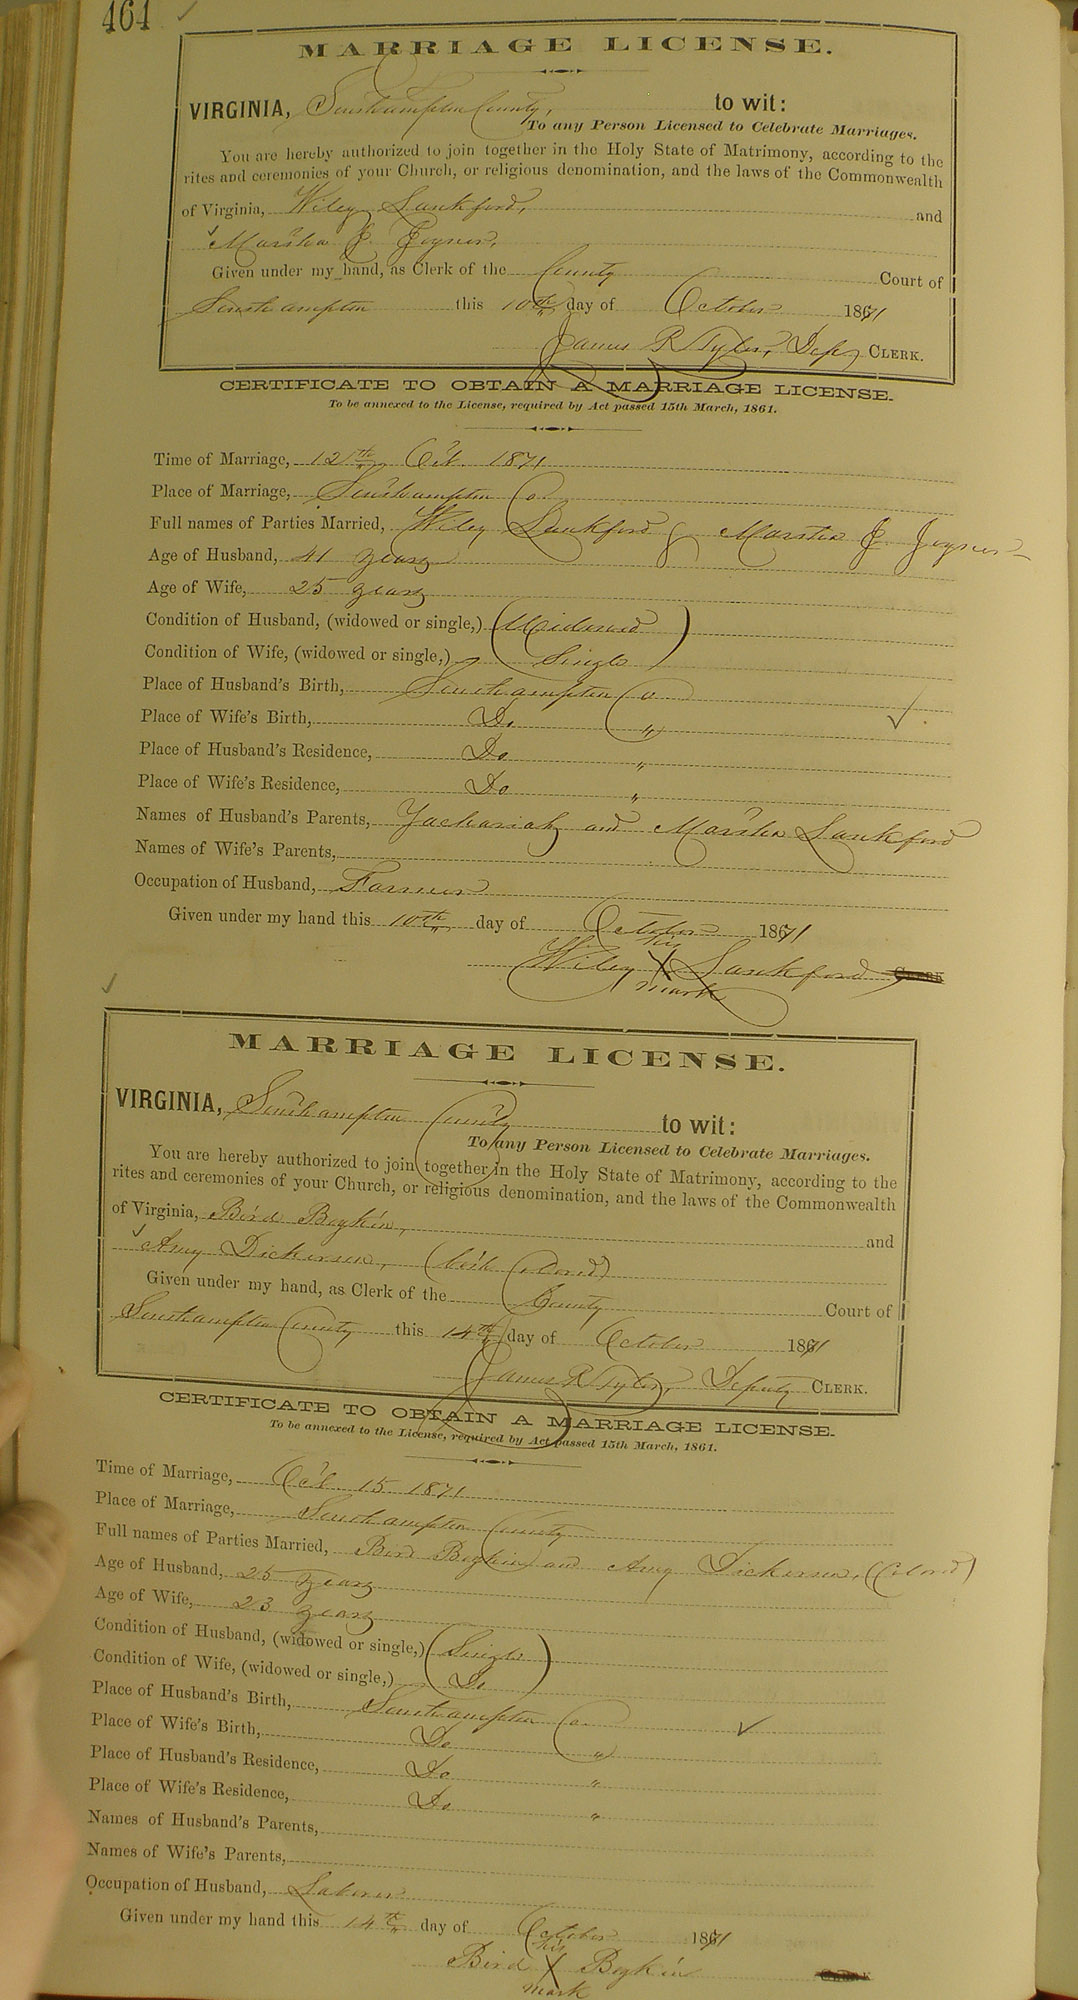 464
MARRIAGE LICENSE.
VIRGINIA, Southampton County, to wit:
To any Person Licensed to Celebrate Marriages.
You are hereby authorized to join together in the Holy State of Matrimony, according to the
rites and ceremonies of your Church, or religious denomination, and the laws of the Commonwealth
of Virginia, Wiley Lankford, and
Martha J. Joyner,
Given under my hand, as Clerk of the County Court of
Southampton this 10th day of October 1871
James R Tyler, Dep, CLERK.
CERTIFICATE TO OBTAIN A MARRIAGE LICENSE.
To be annexed to the License, required by Act passed 15th March, 1861.
Time of Marriage, 12th Oct. 1871
Place of Marriage, Southampton Co.
Full names of Parties Married, Wiley Lankford & Martha J. Joyner
Age of Husband, 41 years
Age of Wife, 25 years
Condition of Husband, (widowed or single,) Widowed
Condition of Wife, (widowed or single,) Single
Place of Husband's Birth, Southampton Co
Place of Wife's Birth, Do "
Place of Husband's Residence, Do "
Place of Wife's Residence, Do "
Names of Husband's Parents, Zachariah and Martha Lankford
Names of Wife's Parents,
Occupation of Husband, Farmer
Given under my hand this 10th day of October 1871
his
Wiley X Lankford CLERK
mark
MARRIAGE LICENSE.
VIRGINIA, Southampton County to wit:
To any Person Licensed to Celebrate Marriages.
You are hereby authorized to join together in the Holy State of Matrimony, according to the
rites and ceremonies of your Church, or religious denomination, and the laws of the Commonwealth
of Virginia, Bird Boykin, and
Amy Dickerson, (both Colored)
Given under my hand, as Clerk of the County Court of
Southampton County this 14th day of October 1871
James R Tyler, Deputy CLERK.
CERTIFICATE TO OBTAIN A MARRIAGE LICENSE.
To be annexed to the License, required by Act passed 15th March, 1861.
Time of Marriage, Oct 15 1871
Place of Marriage, Southampton County
Full names of Parties Married, Bird Boykin and Amy Dickerson, (Colored)
Age of Husband, 25 years
Age of Wife, 23 years
Condition of Husband, (widowed or single,) Single
Condition of Wife, (widowed or single,) Do
Place of Husband's Birth, Southampton Co
Place of Wife's Birth, Do "
Place of Husband's Residence, Do "
Place of Wife's Residence, Do "
Names of Husband's Parents,
Names of Wife's Parents,
Occupation of Husband, Laborer
Given under my hand this 14th day of October 1871
his
Bird X Boykin CLERK
mark